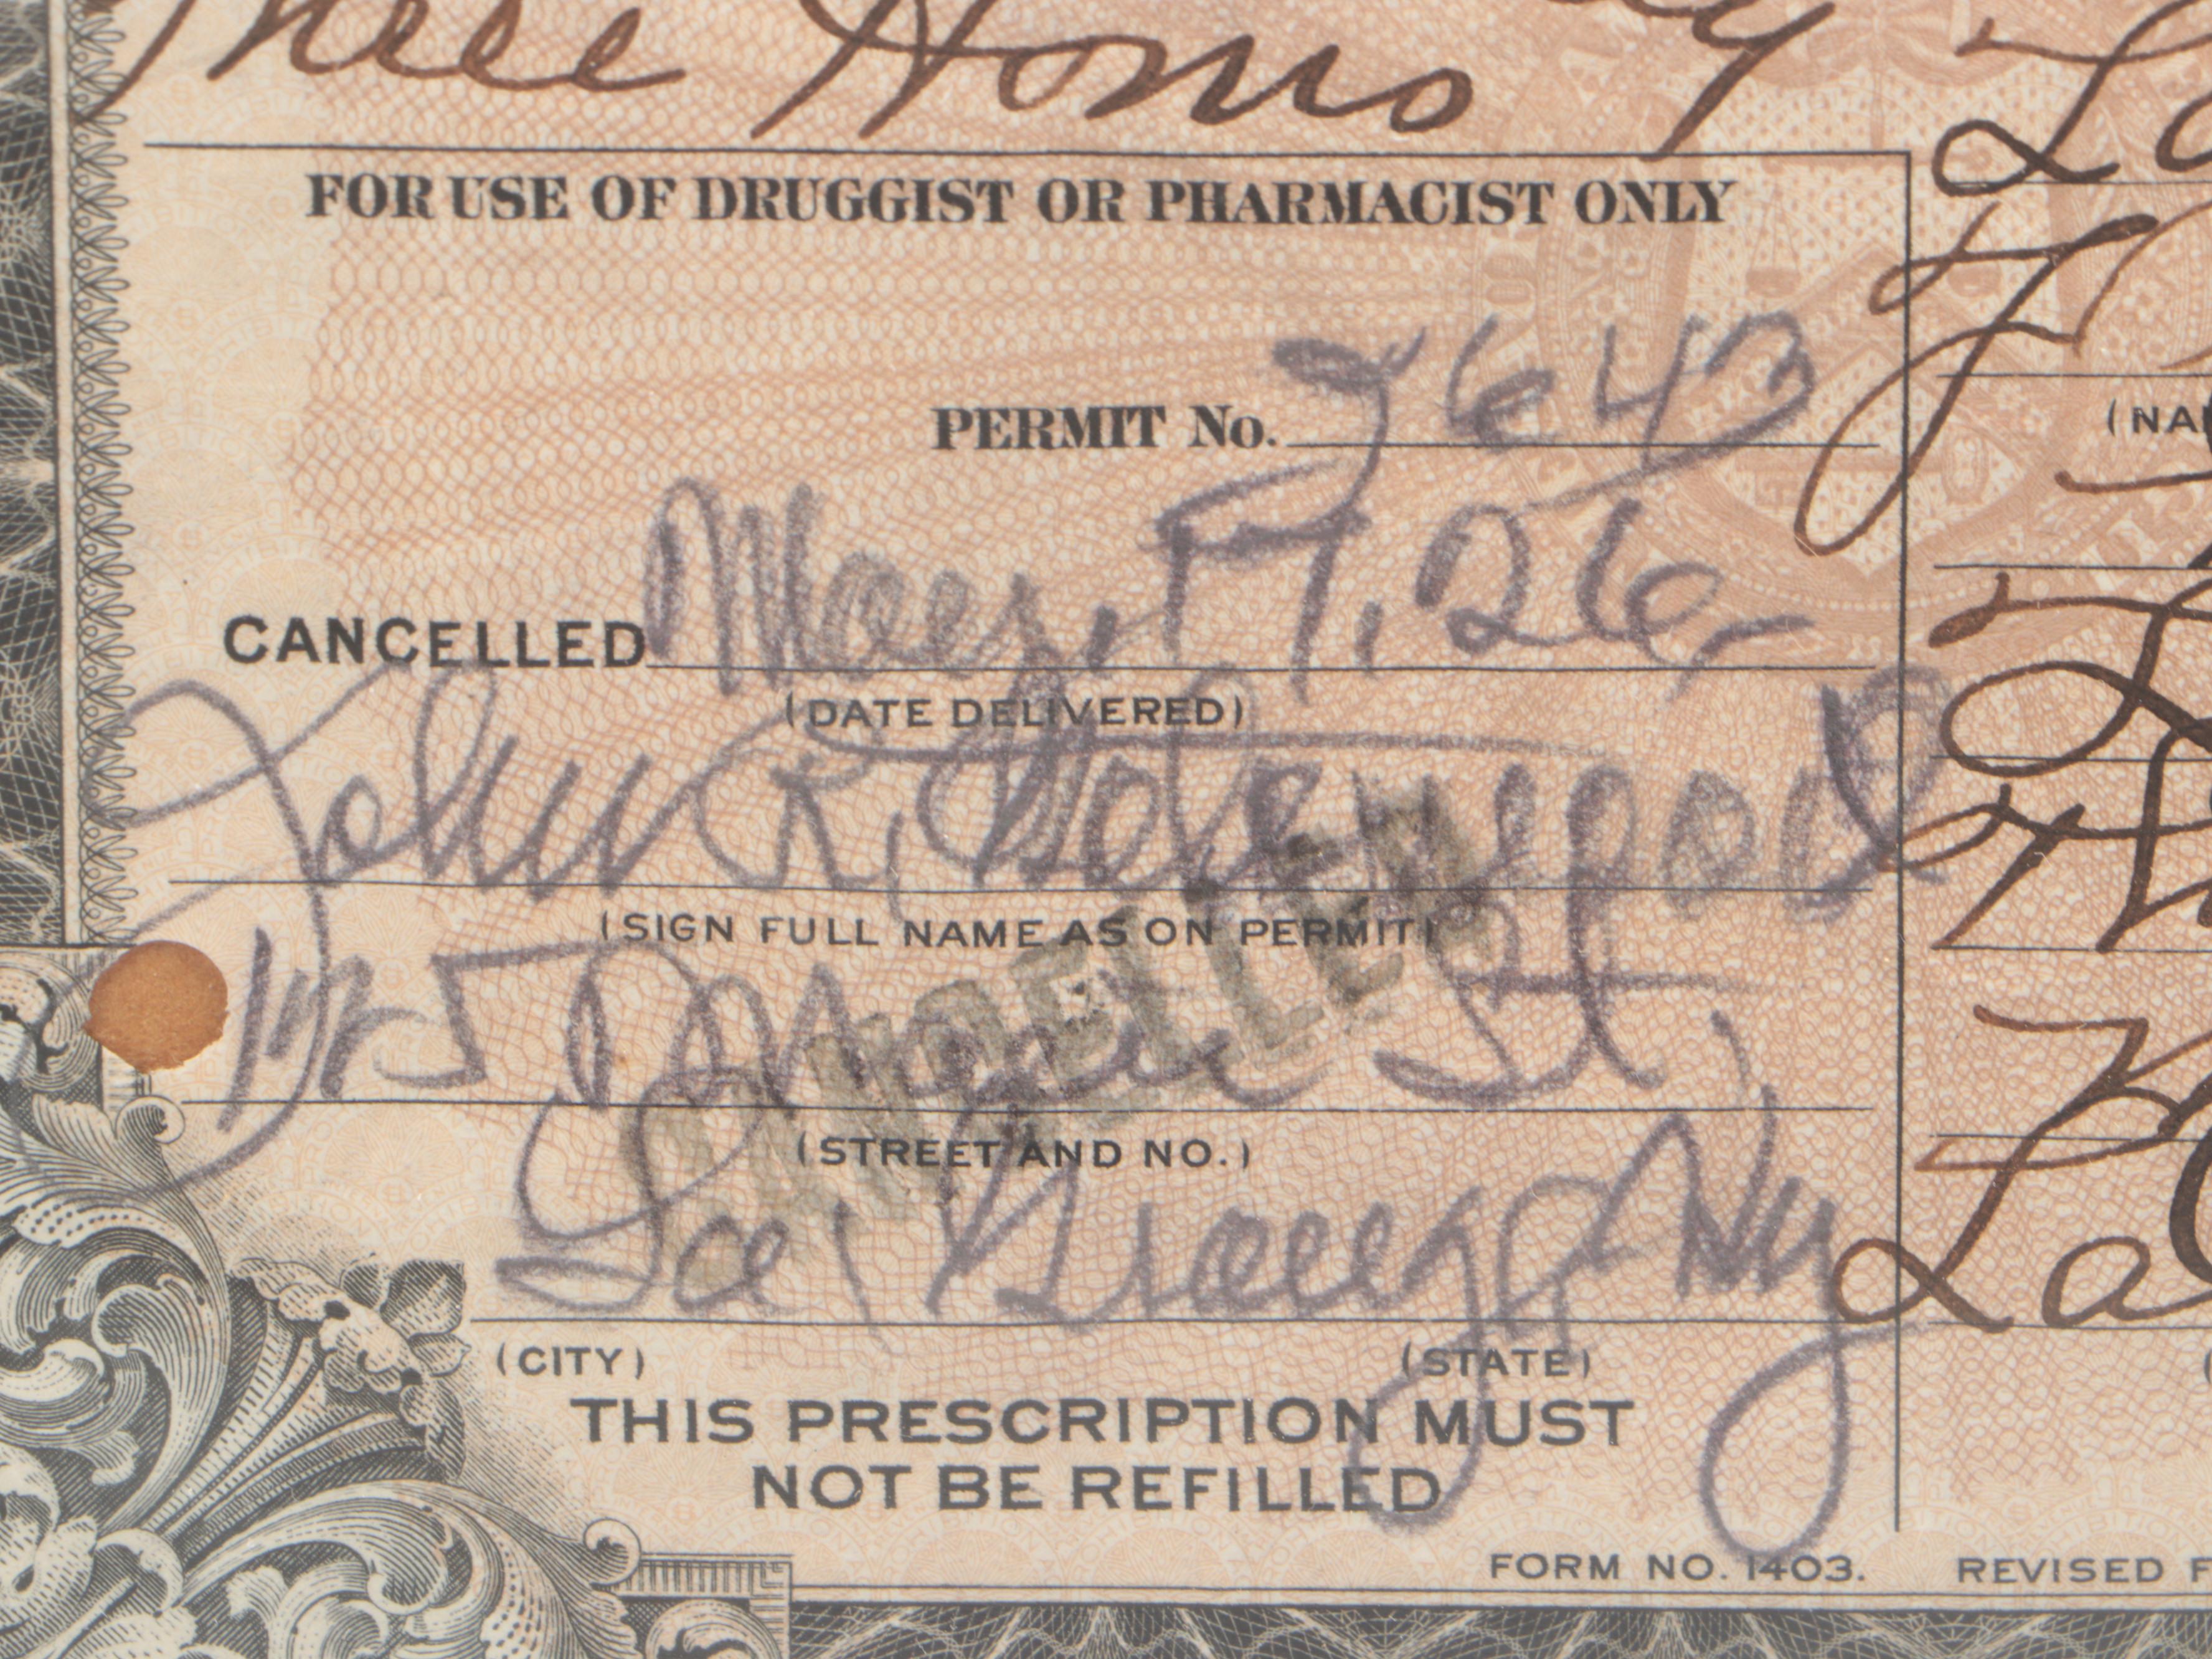 Three Hours
FOR USE OF DRUGGIST OR PHARMACIST ONLY
PERMIT No. 7643
CANCELLED 17, 26
(DATE DELIVERED)
John R,
(SIGN FULL NAME AS ON PERMIT)
CANCELLED
Main St,
(STREET AND NO.)
La Grange, Ky
La
(CITY) (STATE)
THIS PRESCRIPTION MUST
NOT BE REFILLED
FORM NO. 1403. REVISED